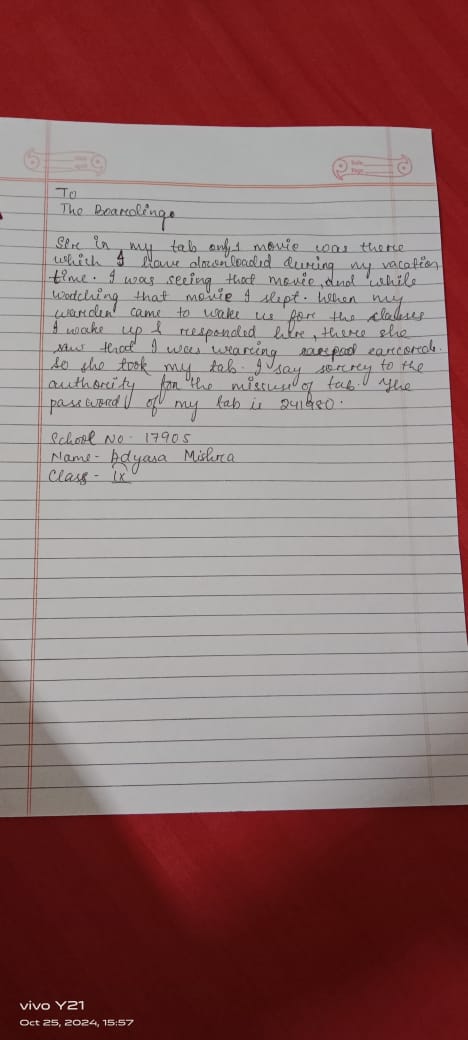 To
The Boarding.
Sir in my tab only 1 movie was there
which I have downloaded during my vacation
time. I was seeing that movie and while
watching that movie I slept. When my
warden came to wake us for the classes
I wake up & responded her, there she
saw that I was wearing earcord.
So she took my tab. I say sorrey to the
authority for the missuse of tab. The
password of my tab is
School No - 17905
Name - Adyasa Mishra
Class - IX
vivo Y21
Oct 25, 2024, 15:57